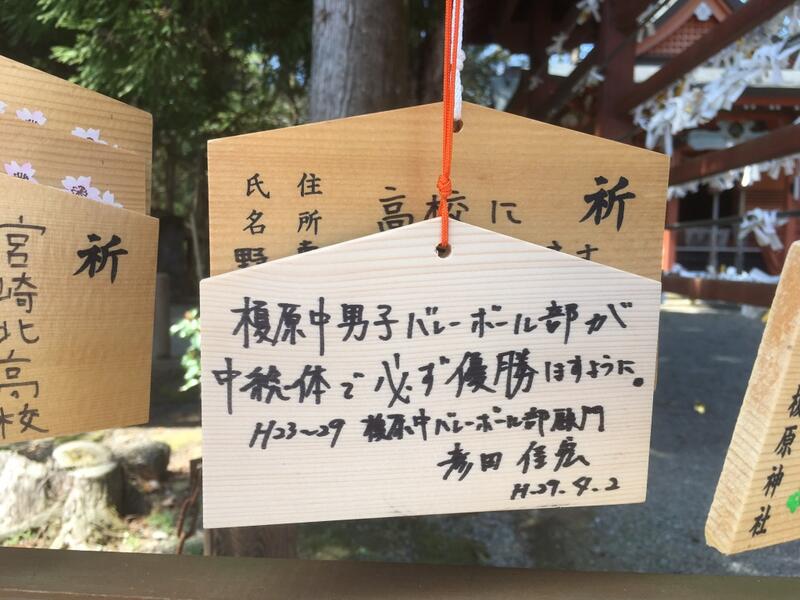 榎原中男子バレーボール部が
中総体で必ず優勝しますように。
H23~29 榎原中バレーボール部顧問
彦田 佳宏
H.29.4.2
祈
高校に
住所
氏名
野
祈
宮崎北高校
榎原神社